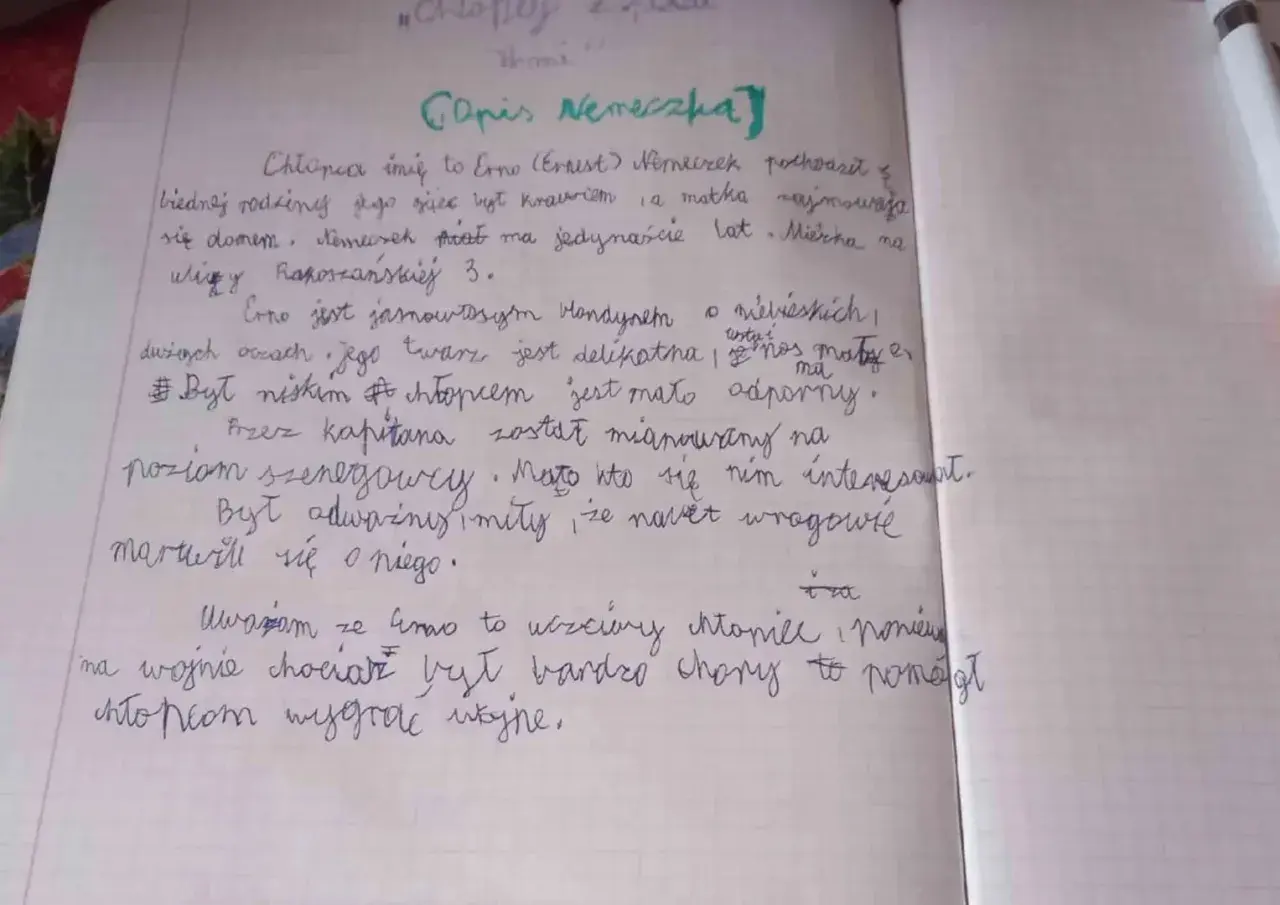 "Chłopcy z
[Opis Nemeczka]
Chłopca imię to Erno (Ernest) Nemeczek pochodził z
biednej rodziny jego ojciec był krawcem, a matka zajmowała
się domem. Nemeczek miał ma jedynaście lat. Mieszka na
ulicy Rakoszańskiej 3.
Erno jest jasnowłosym blondynem o niebieskich,
dużych oczach. jego twarz jest delikatna, usta i nos małe.
ma
Był niskim chłopcem jest mało odporny.
Przez kapitana został mianowany na
poziom szeregowcy. Mało kto się nim interesował.
Był odważny, miły, że nawet wrogowie
martwili się o niego.
i za
Uważam ze Erno to uczciwy chłopiec,
na wojnie chociaż był bardzo chory to pomógł
chłopcom wygrać wojne.